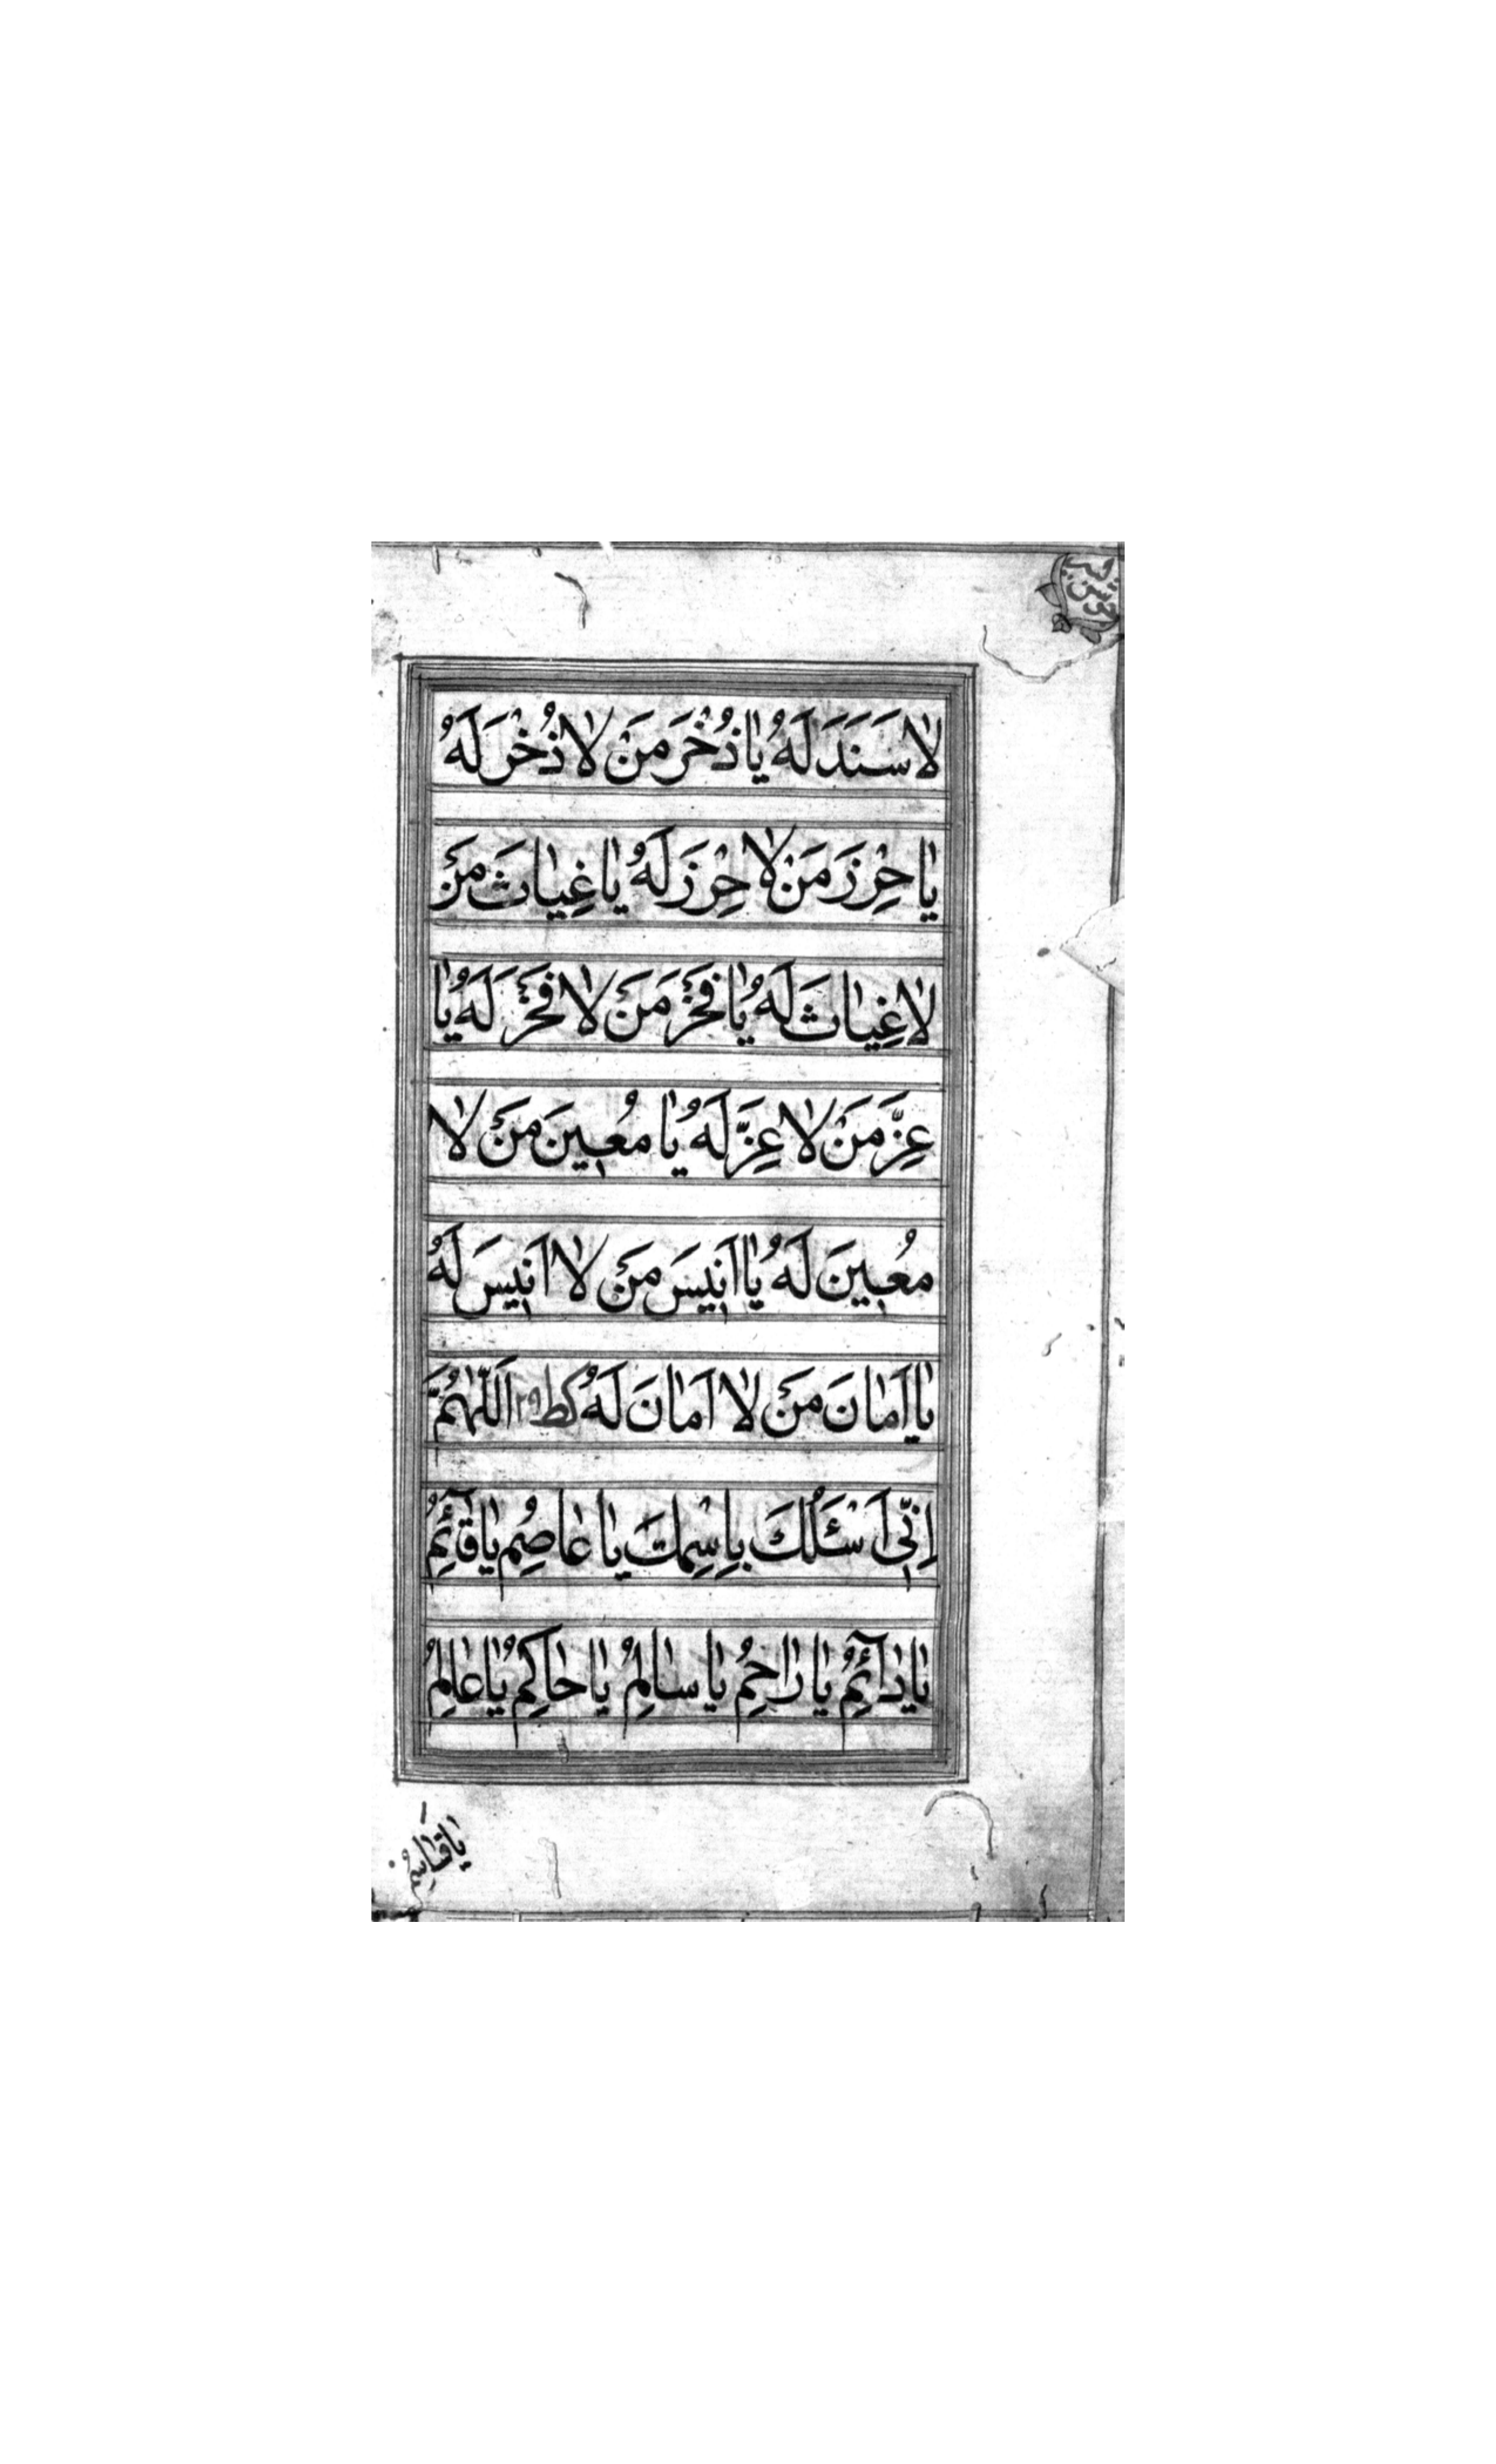 لَا سَنَدَ لَهُ يَا ذُخْرَ مَنْ لَا ذُخْرَ لَهُ
يَا حِرْزَ مَنْ لَا حِرْزَ لَهُ يَا غِيَاثَ مَنْ
لَا غِيَاثَ لَهُ يَا فَخْرَ مَنْ لَا فَخْرَ لَهُ يَا
عِزَّ مَنْ لَا عِزَّ لَهُ يَا مُعِينَ مَنْ لَا
مُعِينَ لَهُ يَا اَنِيسَ مَنْ لَا اَنِيسَ لَهُ
يَا اَمَانَ مَنْ لَا اَمَانَ لَهُ كط ٢٩ اَللّٰهُمَّ
اِنِّي اَسْئَلُكَ بِاِسْمِكَ يَا عَاصِمُ يَا قَآئِمُ
يَا دَآئِمُ يَا رَاحِمُ يَا سَالِمُ يَا حَاكِمُ يَا عَالِمُ
يَا قَاسِمُ